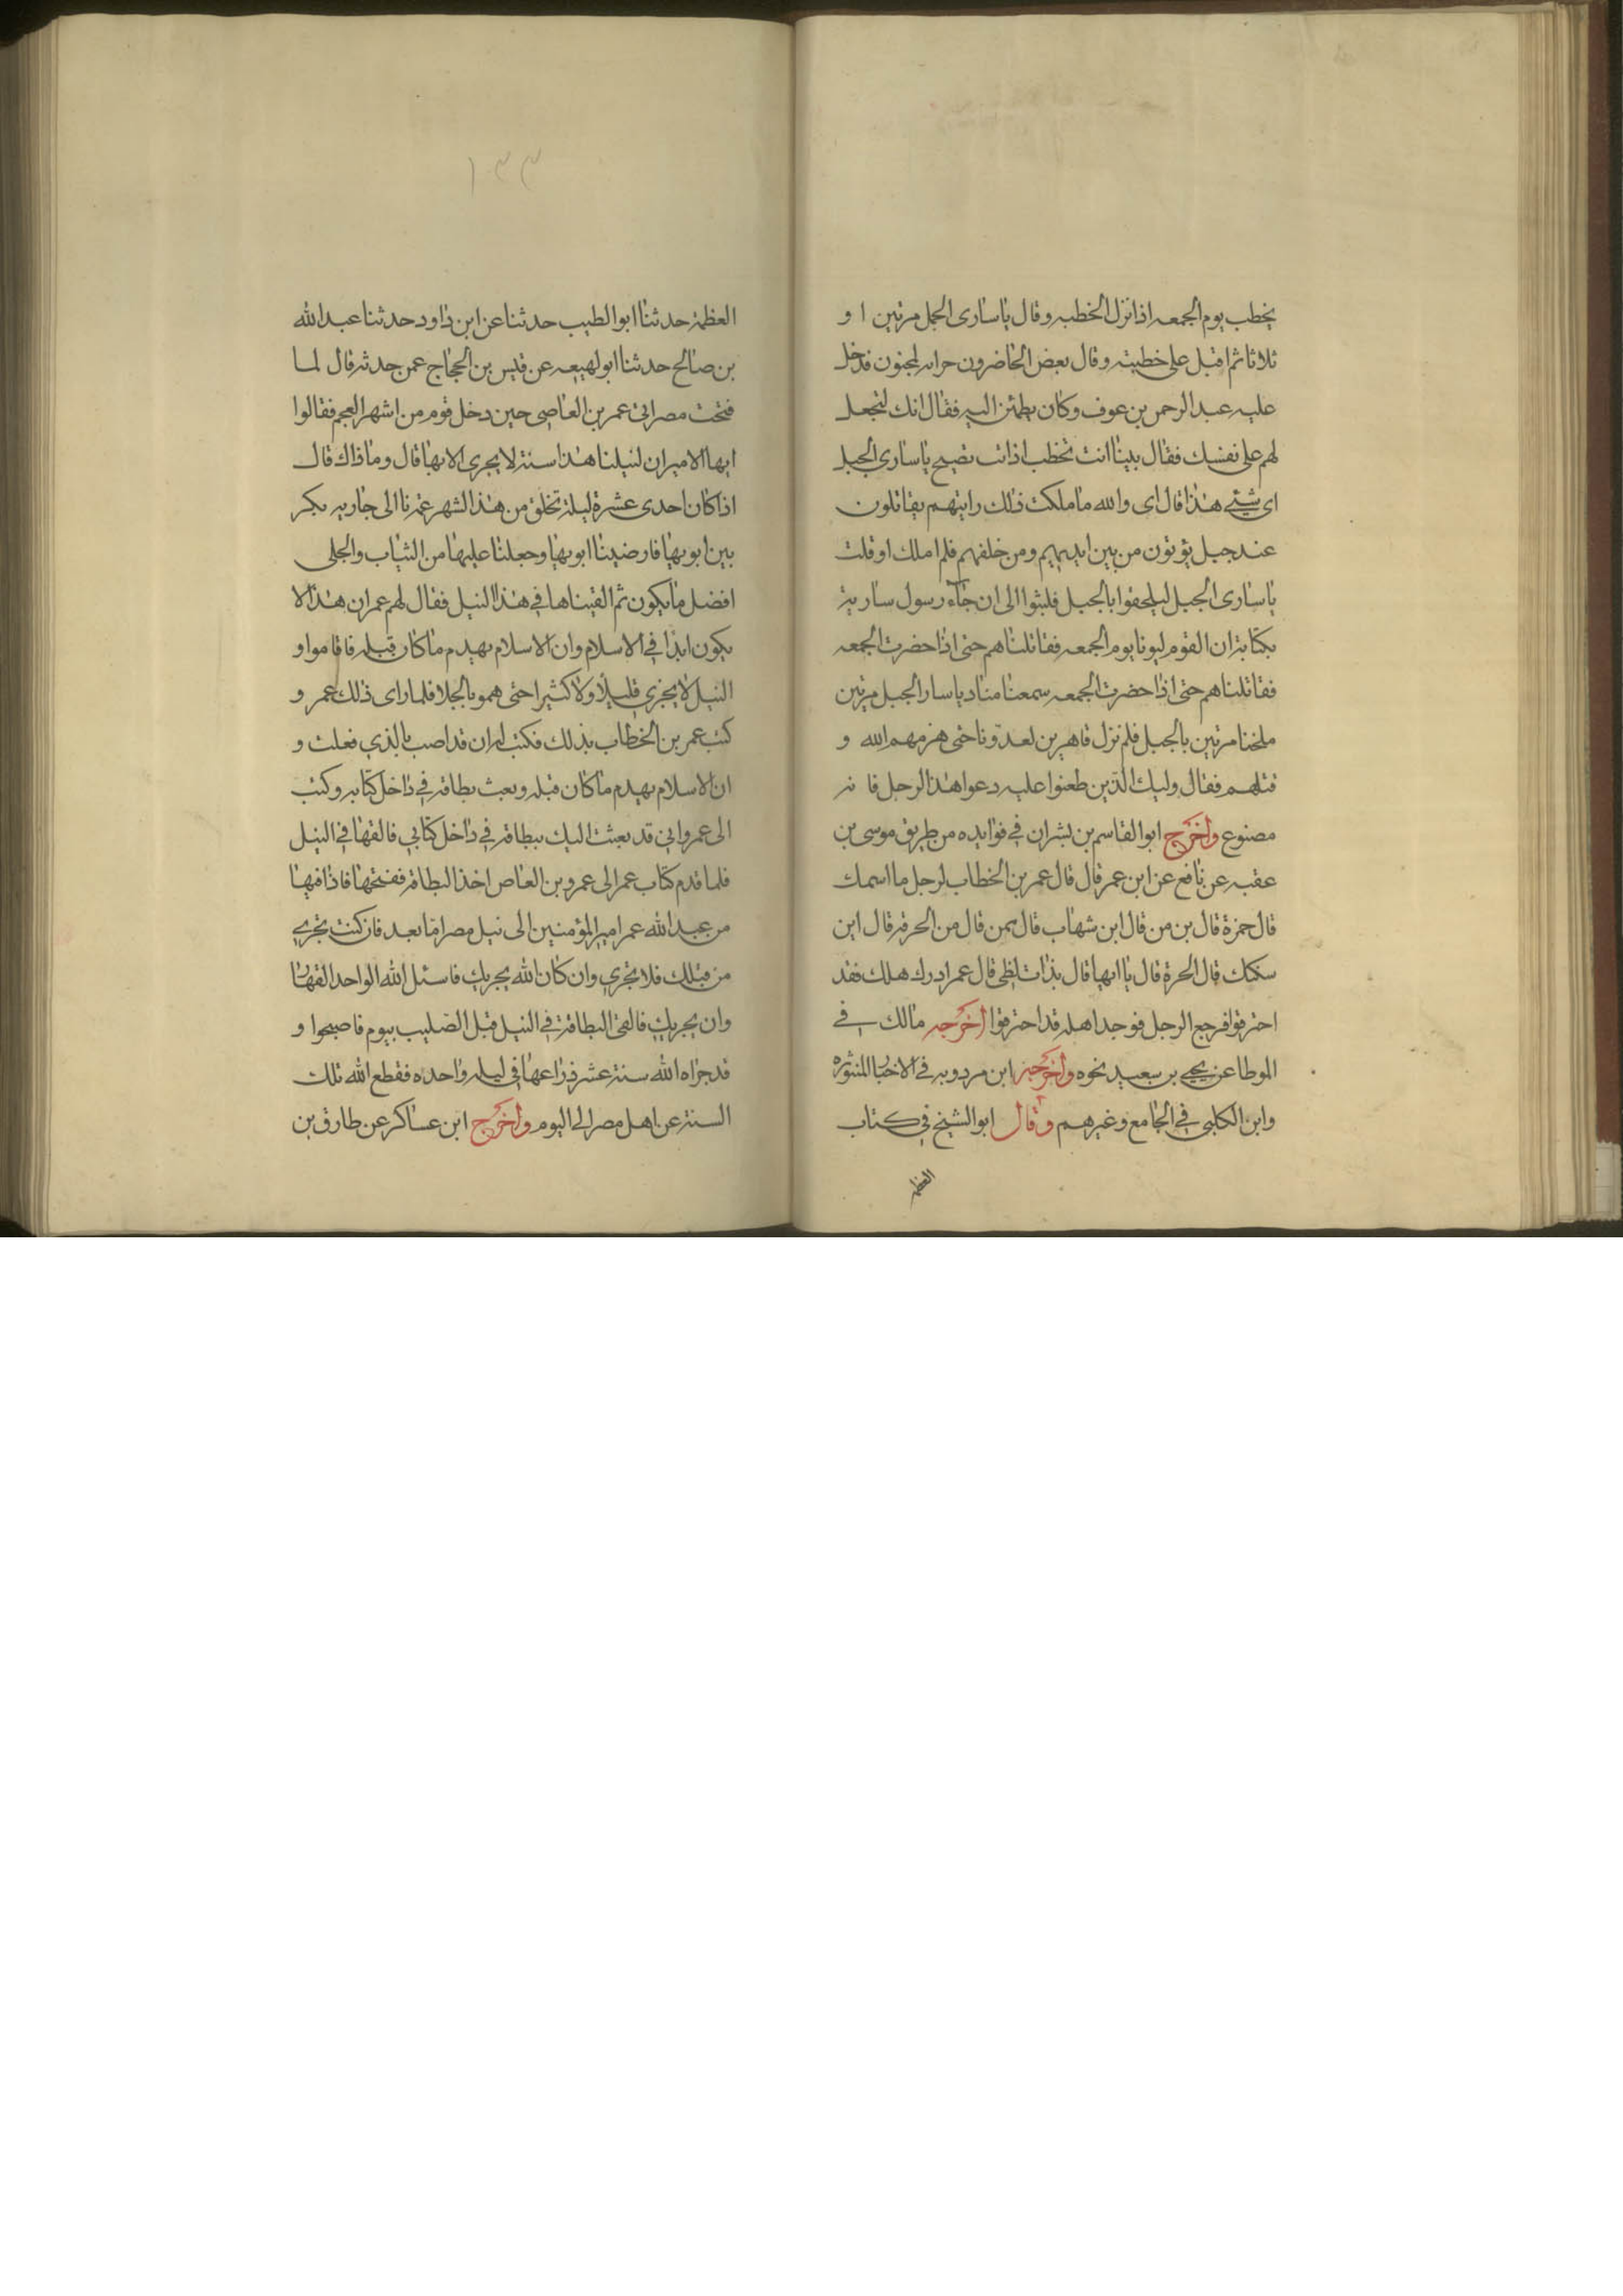 يخطب يوم الجمعه اذا نزل الخطبه وقال ياسارى الجبل مرتين ا و
ثلاثا ثم اقبل على خطبته وقال بعض الحاضرون جرابه لمجنون فدخل
عليه عبد الرحمن بن عوف وكان يطمئن اليه فقال انك لتجعل
لهم على نفسك فقال بينا انت تخطب اذ انت تصيح ياسارى الجبل
اى شئ هذا قال اى والله ما ملكت ذلك رايتهم يقاتلون
عند جبل يؤتون من بين ايديهم ومن خلفهم فلم املك او قلت
ياسارى الجبل ليلحقوا بالجبل فلبثوا الى ان جاء رسول سارية
بكتابة ان القوم ليونا يوم الجمعه فقاتلناهم حتى اذا حضرت الجمعه
فقاتلناهم حتى اذا حضرت الجمعه سمعنا مناد ياسار الجبل مرتين
ملحنا مرتين بالجبل فلم نزل قاهرين لعدونا حتى هزمهم الله و
قتلهم فقال وليك الذين طعنوا عليه دعوا هذا الرجل فا نه
مصنوع واخرج ابوالقاسم بن بشران في فوايده من طريق موسى بن
عقبه عن نافع عن ابن عمر قال قال عمر بن الخطاب لرجل ما اسمك
قال حمزة قال بن من قال ابن شهاب قال ممن قال من الحرقه قال اين
سكنك قال الحرة قال يا ايها قال بذات لظى قال عمر ادرك هلك فقد
احترقوا فرجع الرجل فوجد اهله قد احترقوا اخرجه مالك في
الموطا عن يحيى بن سعيد نحوه واخرجه ابن مردويه في الاخبار المنثوره
وابن الكلبي في الجامع وغيرهم وقال ابوالشيخ في كتاب
العظمه
١٣٣
العظمة حدثنا ابوالطيب حدثنا عن ابن داود حدثنا عبدالله
بن صالح حدثنا ابو لهيعه عن قيس بن الحجاج عمن حدثه قال لما
فتحت مصر اتى عمر بن العاصى حين دخل قوم من اشهر العجم فقالوا
ايها الامير ان لنيلنا هذا سنة لا يجرى الا بها قال وما ذاك قال
اذا كان احدى عشرة ليلة تخلق من هذا الشهر عمدنا الى جاريه بكر
بين ابويها فارضينا ابويها وجعلنا عليها من الثياب والحلى
افضل ما يكون ثم القيناها في هذا النيل فقال لهم عمر ان هذا لا
يكون ابدا في الاسلام وان الاسلام يهدم ما كان قبله فاقاموا و
النيل لا يجري قليلا ولا كثيرا حتى همو بالجلا فلما راى ذلك عمر و
كتب عمر بن الخطاب بذلك فكتب له ان قد اصب بالذي فعلت و
ان الاسلام يهدم ما كان قبله وبعث بطاقه في داخل كتابه وكتب
الى عمرو اني قد بعثت اليك ببطاقه في داخل كتابي فالقها في النيل
فلما قدم كتاب عمر الى عمرو بن العاص اخذ البطاقه ففتحها فاذا فيها
من عبد الله عمر امير المؤمنين الى نيل مصر اما بعد فان كنت تجري
من قبلك فلا تجري وان كان الله يجريك فاسئل الله الواحد القهار
وان يجريك فالقى البطاقة في النيل قبل الصليب بيوم فاصبحوا و
قد جراه الله ستة عشر ذراعها في ليله واحده فقطع الله تلك
السنة عن اهل مصر الى اليوم واخرج ابن عساكر عن طارق بن